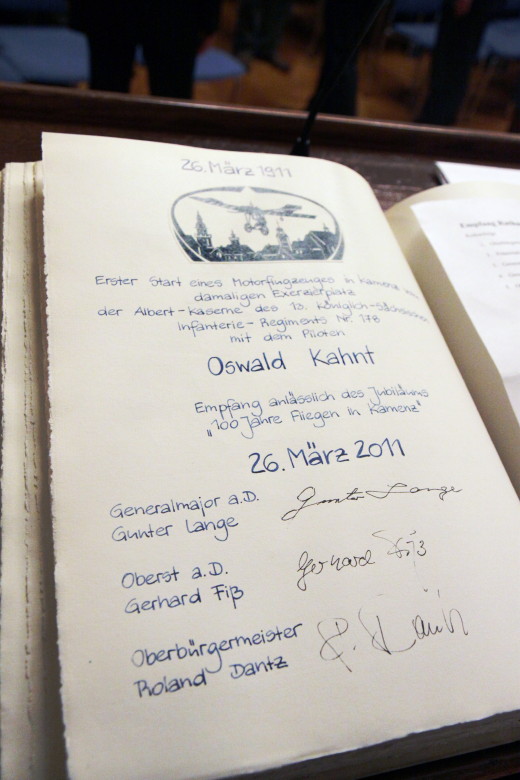 26. März 1911
Erster Start eines Motorflugzeuges in Kamenz
damaligen Exerzierplatz
der Albert-Kaserne des 13. Königlich-Sächsischen
Infanterie-Regiments Nr. 178
mit dem Piloten
Oswald Kahnt
Empfang anlässlich des Jubiläums
„100 Jahre Fliegen in Kamenz"
26. März 2011
Generalmajor a.D.
Gunter Lange
Gunter Lange
Oberst a.D.
Gerhard Fiß
Gerhard Fiß
Oberbürgermeister
Roland Dantz
Empfang